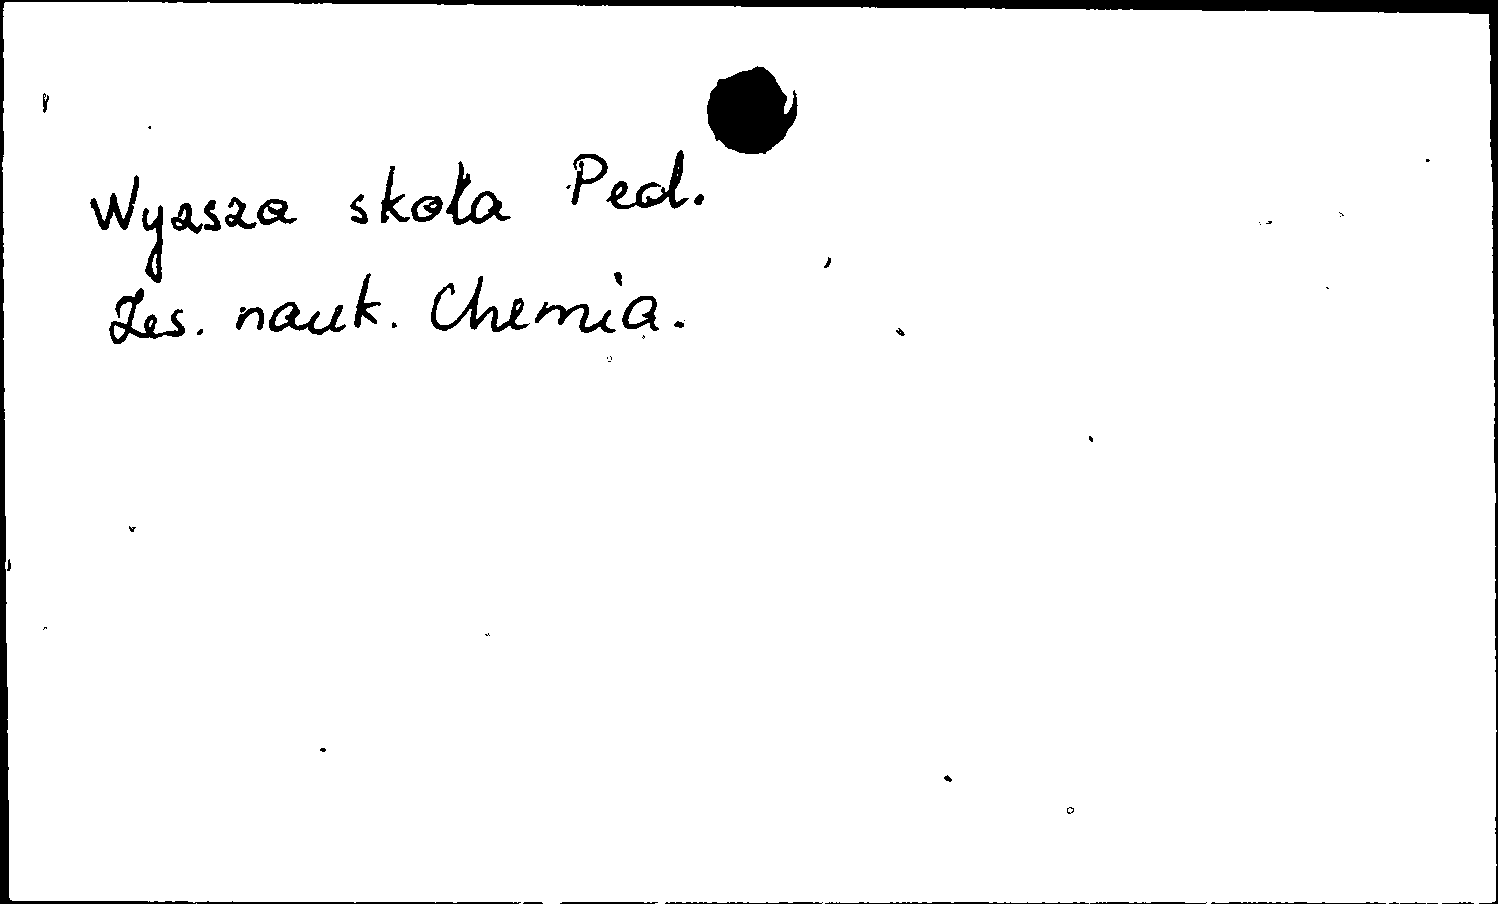 Wyzsza skoła Ped.
Zes. nauk. Chemia.